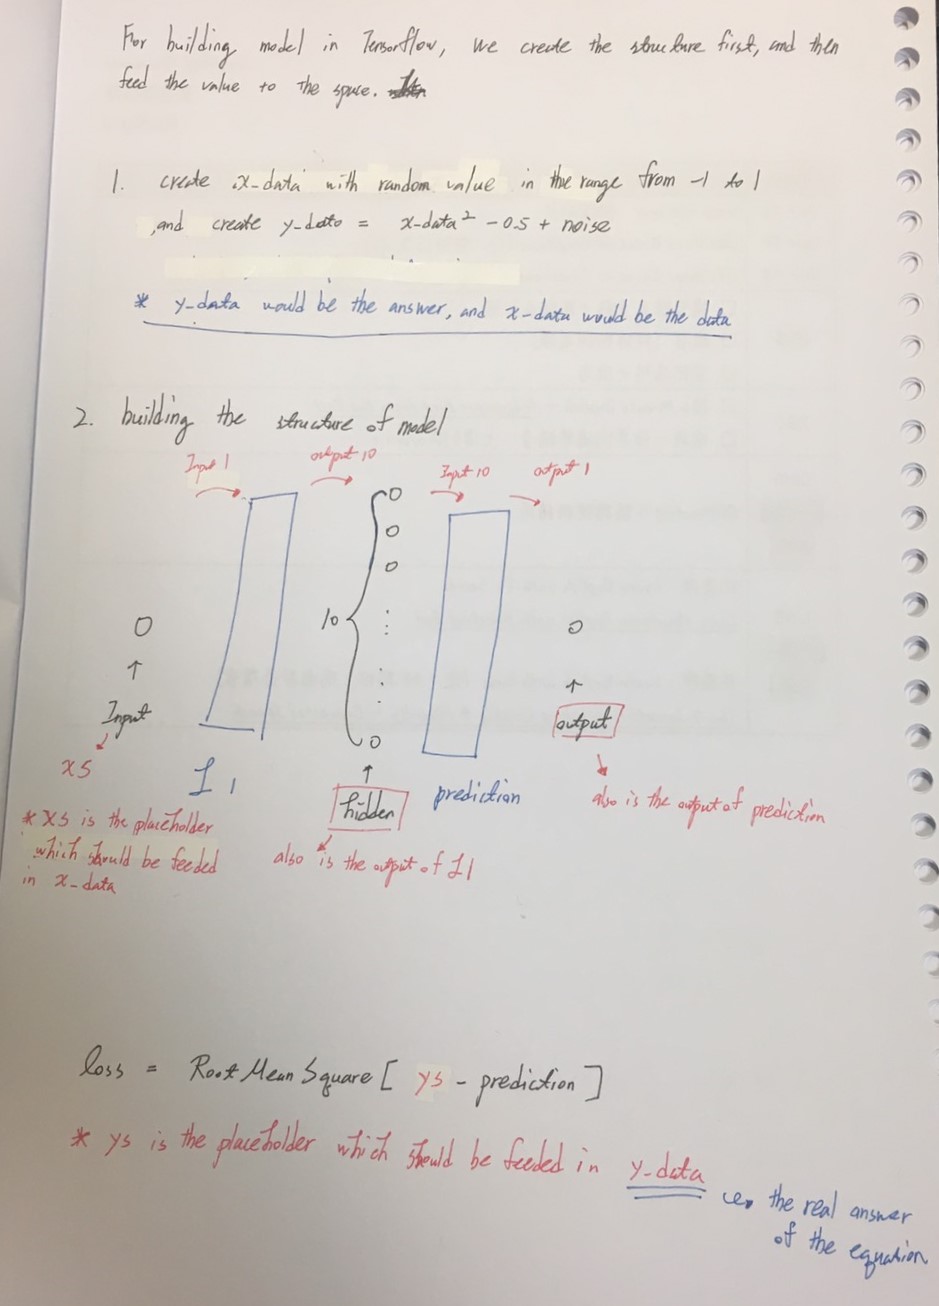 For building model in Tensorflow, we create the structure first, and then
feed the value to the space.
1. create x-data with random value in the range from -1 to 1
, and create y-data = x-data² - 0.5 + noise
* y-data would be the answer, and x-data would be the data
2. building the structure of model
Input 1 output 10 Input 10 output 1
10
Input
output
xs
L1
hidden
prediction
also is the output of prediction
* xs is the placeholder
which should be feeded
in x-data
also is the output of L1
loss = Root Mean Square [ ys - prediction ]
* ys is the placeholder which should be feeded in y-data
the real answer
of the equation